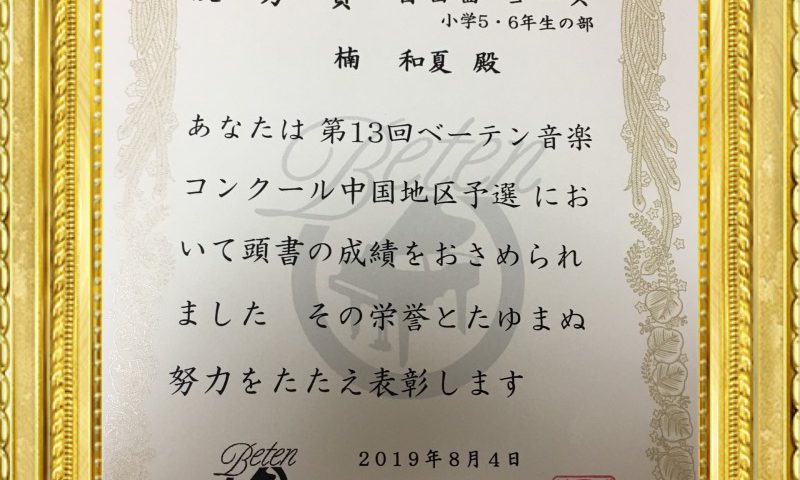 小学5・6年生の部
楠 和夏 殿
あなたは 第13回ベーテン音楽
Beten
コンクール中国地区予選 にお
いて頭書の成績をおさめられ
ました その栄誉とたゆまぬ
努力をたたえ表彰します
Beten
2019年8月4日